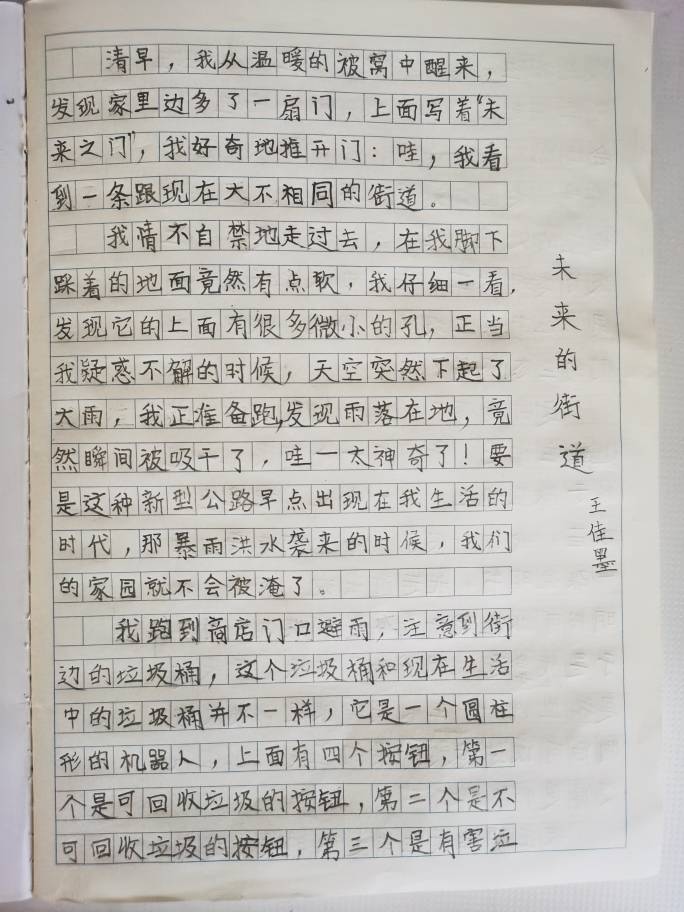 未来的街道
王佳墨
清早，我从温暖的被窝中醒来，
发现家里边多了一扇门，上面写着“未
来之门”，我好奇地推开门：哇，我看
到一条跟现在大不相同的街道。
我情不自禁地走过去，在我脚下
踩着的地面竟然有点软，我仔细一看，
发现它的上面有很多微小的孔，正当
我疑惑不解的时候，天空突然下起了
大雨，我正准备跑，发现雨落在地，竟
然瞬间被吸干了，哇一太神奇了！要
是这种新型公路早点出现在我生活的
时代，那暴雨洪水袭来的时候，我们
的家园就不会被淹了。
我跑到商店门口避雨，注意到街
边的垃圾桶，这个垃圾桶和现在生活
中的垃圾桶并不一样，它是一个圆柱
形的机器人，上面有四个按钮，第一
个是可回收垃圾的按钮，第二个是不
可回收垃圾的按钮，第三个是有害垃